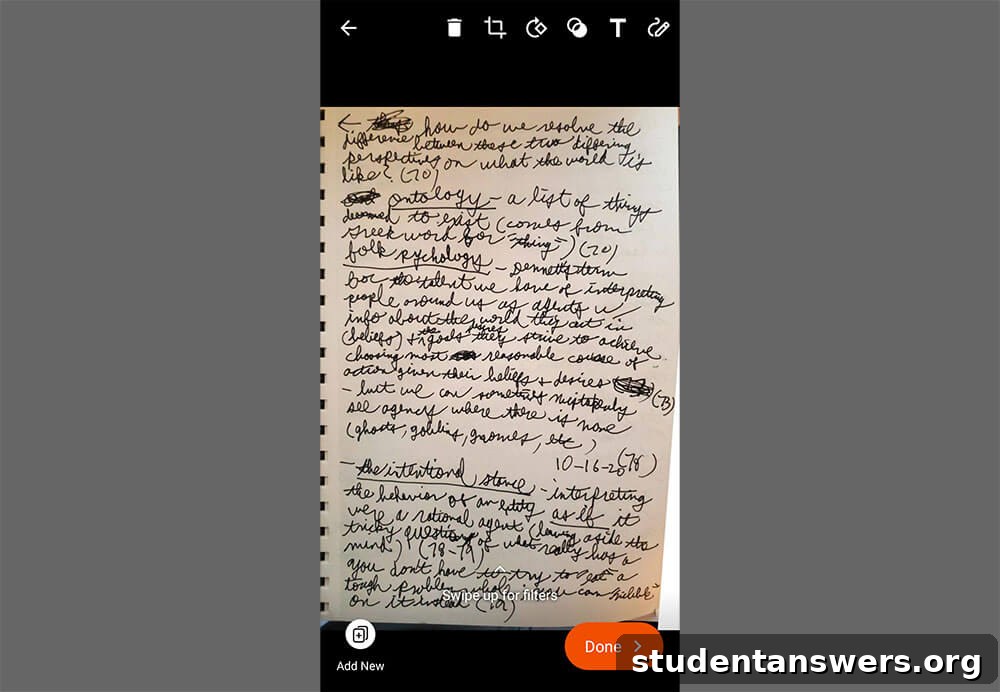 ← how do we resolve the
difference between these two differing
perspectives on what the world is
like? (70)
ontology - a list of things
deemed to exist (comes from
Greek word for "thing") (70)
folk psychology - Dennett's term
for the talent we have of interpreting
people around us as agents w/
info about the world they act in
(beliefs) + the goals they strive to achieve
desires
choosing most reasonable course of
action given their beliefs + desires (73)
- but we can sometimes mistakenly
see agency where there is none
(ghosts, goblins, gnomes, etc)
(78)
10-16-20
- the intentional stance - interpreting
the behavior of an entity as if it
were a rational agent (leaving aside the
tricky questions of what really has a
mind) (78-79)
you don't have to try to "eat" a
tough problem whole; you can "nibble"
on it instead (79)
Swipe up for filters
Add New
Done
studentanswers.org